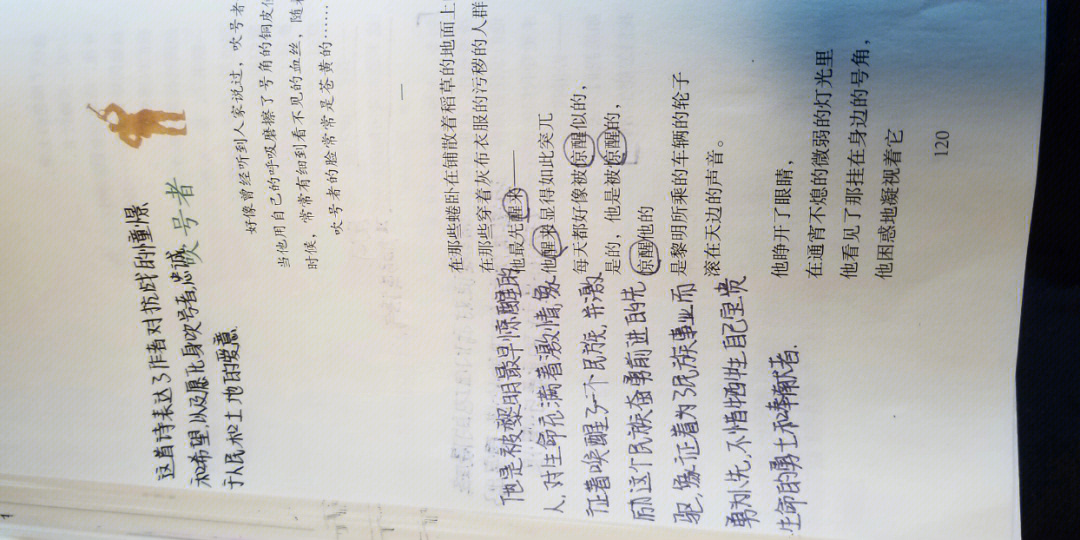 吹号者
这首诗表达了作者对抗战的憧憬
和希望,以及愿化身吹号者,忠诚
于人民和土地的爱意
好像曾经听到人家说过，吹号者
当他用自己的呼吸磨擦了号角的铜皮
时候，常常有细到看不见的血丝，随
吹号者的脸常常是苍黄的……
一
在那些蜷卧在铺散着稻草的地面上
在那些穿着灰布衣服的污秽的人群
他最先醒来——
他醒来显得如此突兀
每天都好像被惊醒似的，
是的，他是被惊醒的，
惊醒他的
是黎明所乘的车辆的轮子
滚在天边的声音。
他睁开了眼睛，
在通宵不熄的微弱的灯光里
他看见了那挂在身边的号角，
他困惑地凝视着它
他是被黎明最早惊醒的
人,对生命充满着激情,象
征着唤醒了一个民族,并激
励这个民族奋勇前进的先
驱,象征着为了民族事业而
勇为人先,不惜牺牲自己宝贵
生命的勇士和奉献者.
120